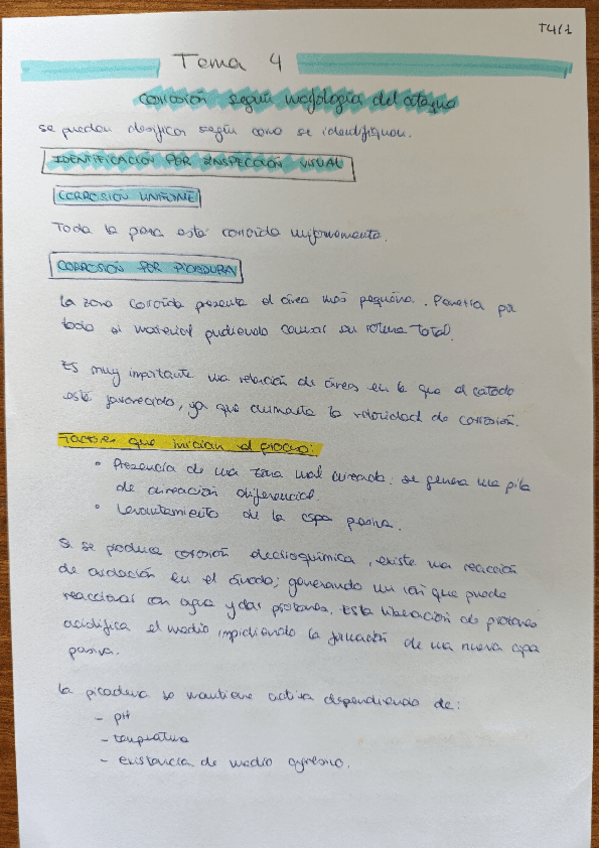 T4/1
Tema 4
corrosión según morfología del ataque
se pueden clasificar según como se identifiquen.
IDENTIFICACIÓN POR INSPECCIÓN VISUAL
CORROSIÓN UNIFORME
Toda la pieza está corroída uniformemente.
CORROSIÓN POR PICADURA
La zona corroída presenta el área más pequeña. Penetra por
todo el material pudiendo causar su rotura total.
Es muy importante una relación de áreas en la que el cátodo
está favorecido, ya que aumenta la velocidad de corrosión.
Factores que inician el proceso:
• Presencia de una zona mal aireada: se genera una pila
de aireación diferencial.
• Levantamiento de la capa pasiva.
Si se produce corrosión electroquímica, existe una reacción
de oxidación en el ánodo; generando un ión que puede
reaccionar con agua y dar protones. Esta liberación de protones
acidifica el medio impidiendo la formación de una nueva capa
pasiva.
La picadura se mantiene activa dependiendo de:
- pH
- temperatura
- existencia de medio agresivo.